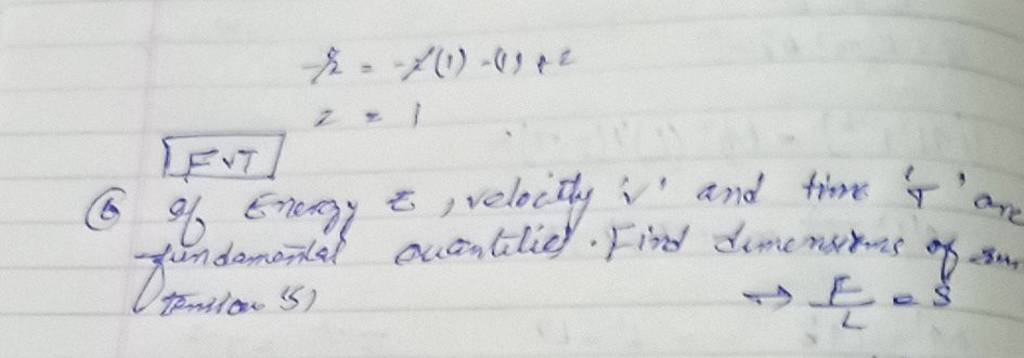 -2 = -2(1) -(1) + z
z = 1
FVT
⑥ If Energy E, velocity 'v' and time 'T' are
fundamental quantities. Find dimensions of sur
tension (S)
→ F/L = S